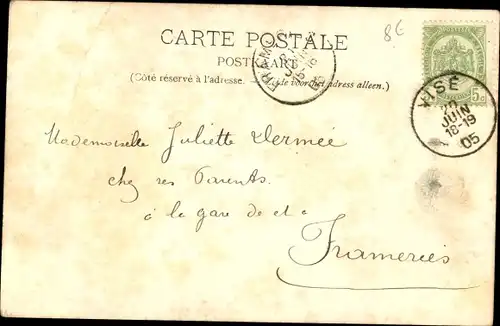 8€
CARTE POSTALE
POSTKAART
(Côté réservé à l'adresse. voor het adress alleen.)
FRAM
05
5c
VISÉ
JUIN
18-19
05
Mademoiselle Juliette Dermée
chez ses Parents.
à la gare de et à
Frameries